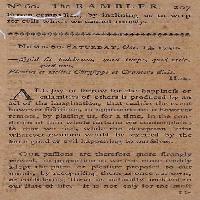 No 60. The RAMBLER 207
by including us in
NUMB. 60. SATURDAY, Oct. 13, 1750.
—Quid sit pulchrum, quid turpe, quid utile,
quid non,
Plenius et melius Chrysippo et Crantore dicit.
HOR.
ALL joy or sorrow for the happiness or
calamities of others is produced by an
act of the imagination, that realises the event
however fictitious, or approximates it however
remote, by placing us, for a time, in the con-
dition of him whose fortune we contemplate;
so that we feel, while the deception lasts,
whatever motions would be excited by the
same good or evil happening to ourselves.
Our passions are therefore more strongly
moved, in proportion as we can more readily
adopt the pains or pleasure proposed to our
minds, by recognising them as once our own,
or considering them as naturally incident to
our state of life. It is not easy for the most